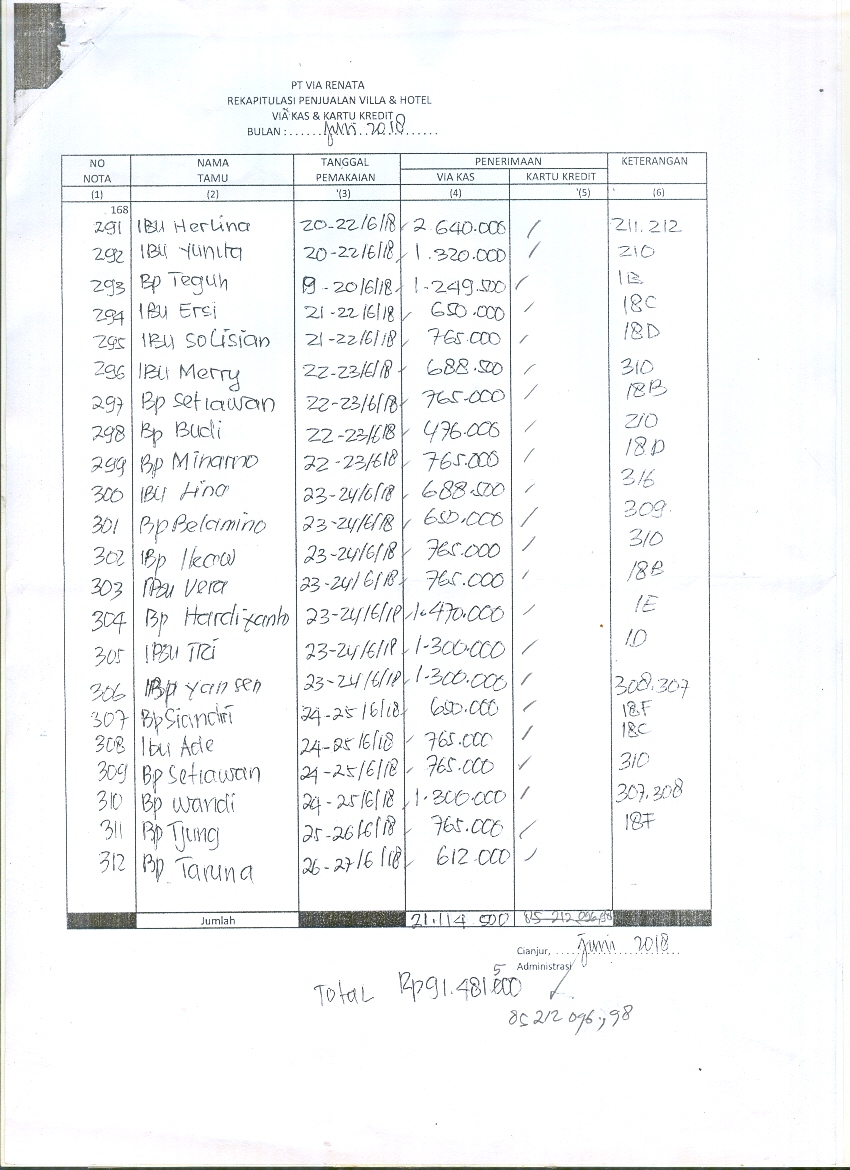 PT VIA RENATA
REKAPITULASI PENJUALAN VILLA & HOTEL
VIA KAS & KARTU KREDIT
BULAN : ...... Juni 2018 ......
NO NOTA NAMA TAMU TANGGAL PEMAKAIAN PENERIMAAN KETERANGAN
VIA KAS KARTU KREDIT
(1) (2) '(3) (4) '(5) (6)
168
291 IBU Herlina 20-22/6/18 2.640.000 / 211.212
292 IBU Yunita 20-22/6/18 1.320.000 / 210
293 Bp Teguh 19-20/6/18 1-249.500 / 1B
294 IBU Ersi 21-22/6/18 650.000 / 18C
295 IBU Solisian 21-22/6/18 765.000 / 18D
296 IBU Merry 22-23/6/18 688.500 / 310
297 Bp Setiawan 22-23/6/18 765.000 / 18B
298 Bp Budi 22-23/6/18 476.000 / 210
299 Bp Minarno 22-23/6/18 765.000 / 18.D
300 IBU Lina 23-24/6/18 688.500 / 316
301 Bp Belamino 23-24/6/18 650.000 / 309
302 Bp 23-24/6/18 765.000 / 310
303 Ibu Vera 23-24/6/18 765.000 / 18B
304 Bp Hardiyanto 23-24/6/18 1.470.000 / 1E
305 IBU TRI 23-24/6/18 1-300.000 / 1D
306 Bp Yansen 23-24/6/18 1.300.000 / 308.307
307 Bp Siandri 24-25/6/18 650.000 / 18F
308 Ibu Ade 24-25/6/18 765.000 / 18C
309 Bp Setiawan 24-25/6/18 765.000 / 310
310 Bp Wandi 24-25/6/18 1.300.000 / 307.308
311 Bp Tjung 25-26/6/18 765.000 / 18F
312 Bp Taruna 26-27/6/18 612.000 /
Jumlah 21.114.500 85.212.096,98
Cianjur, .... Juni 2018 ....
Administrasi
Total Rp 91.481.500
85 212 096,98